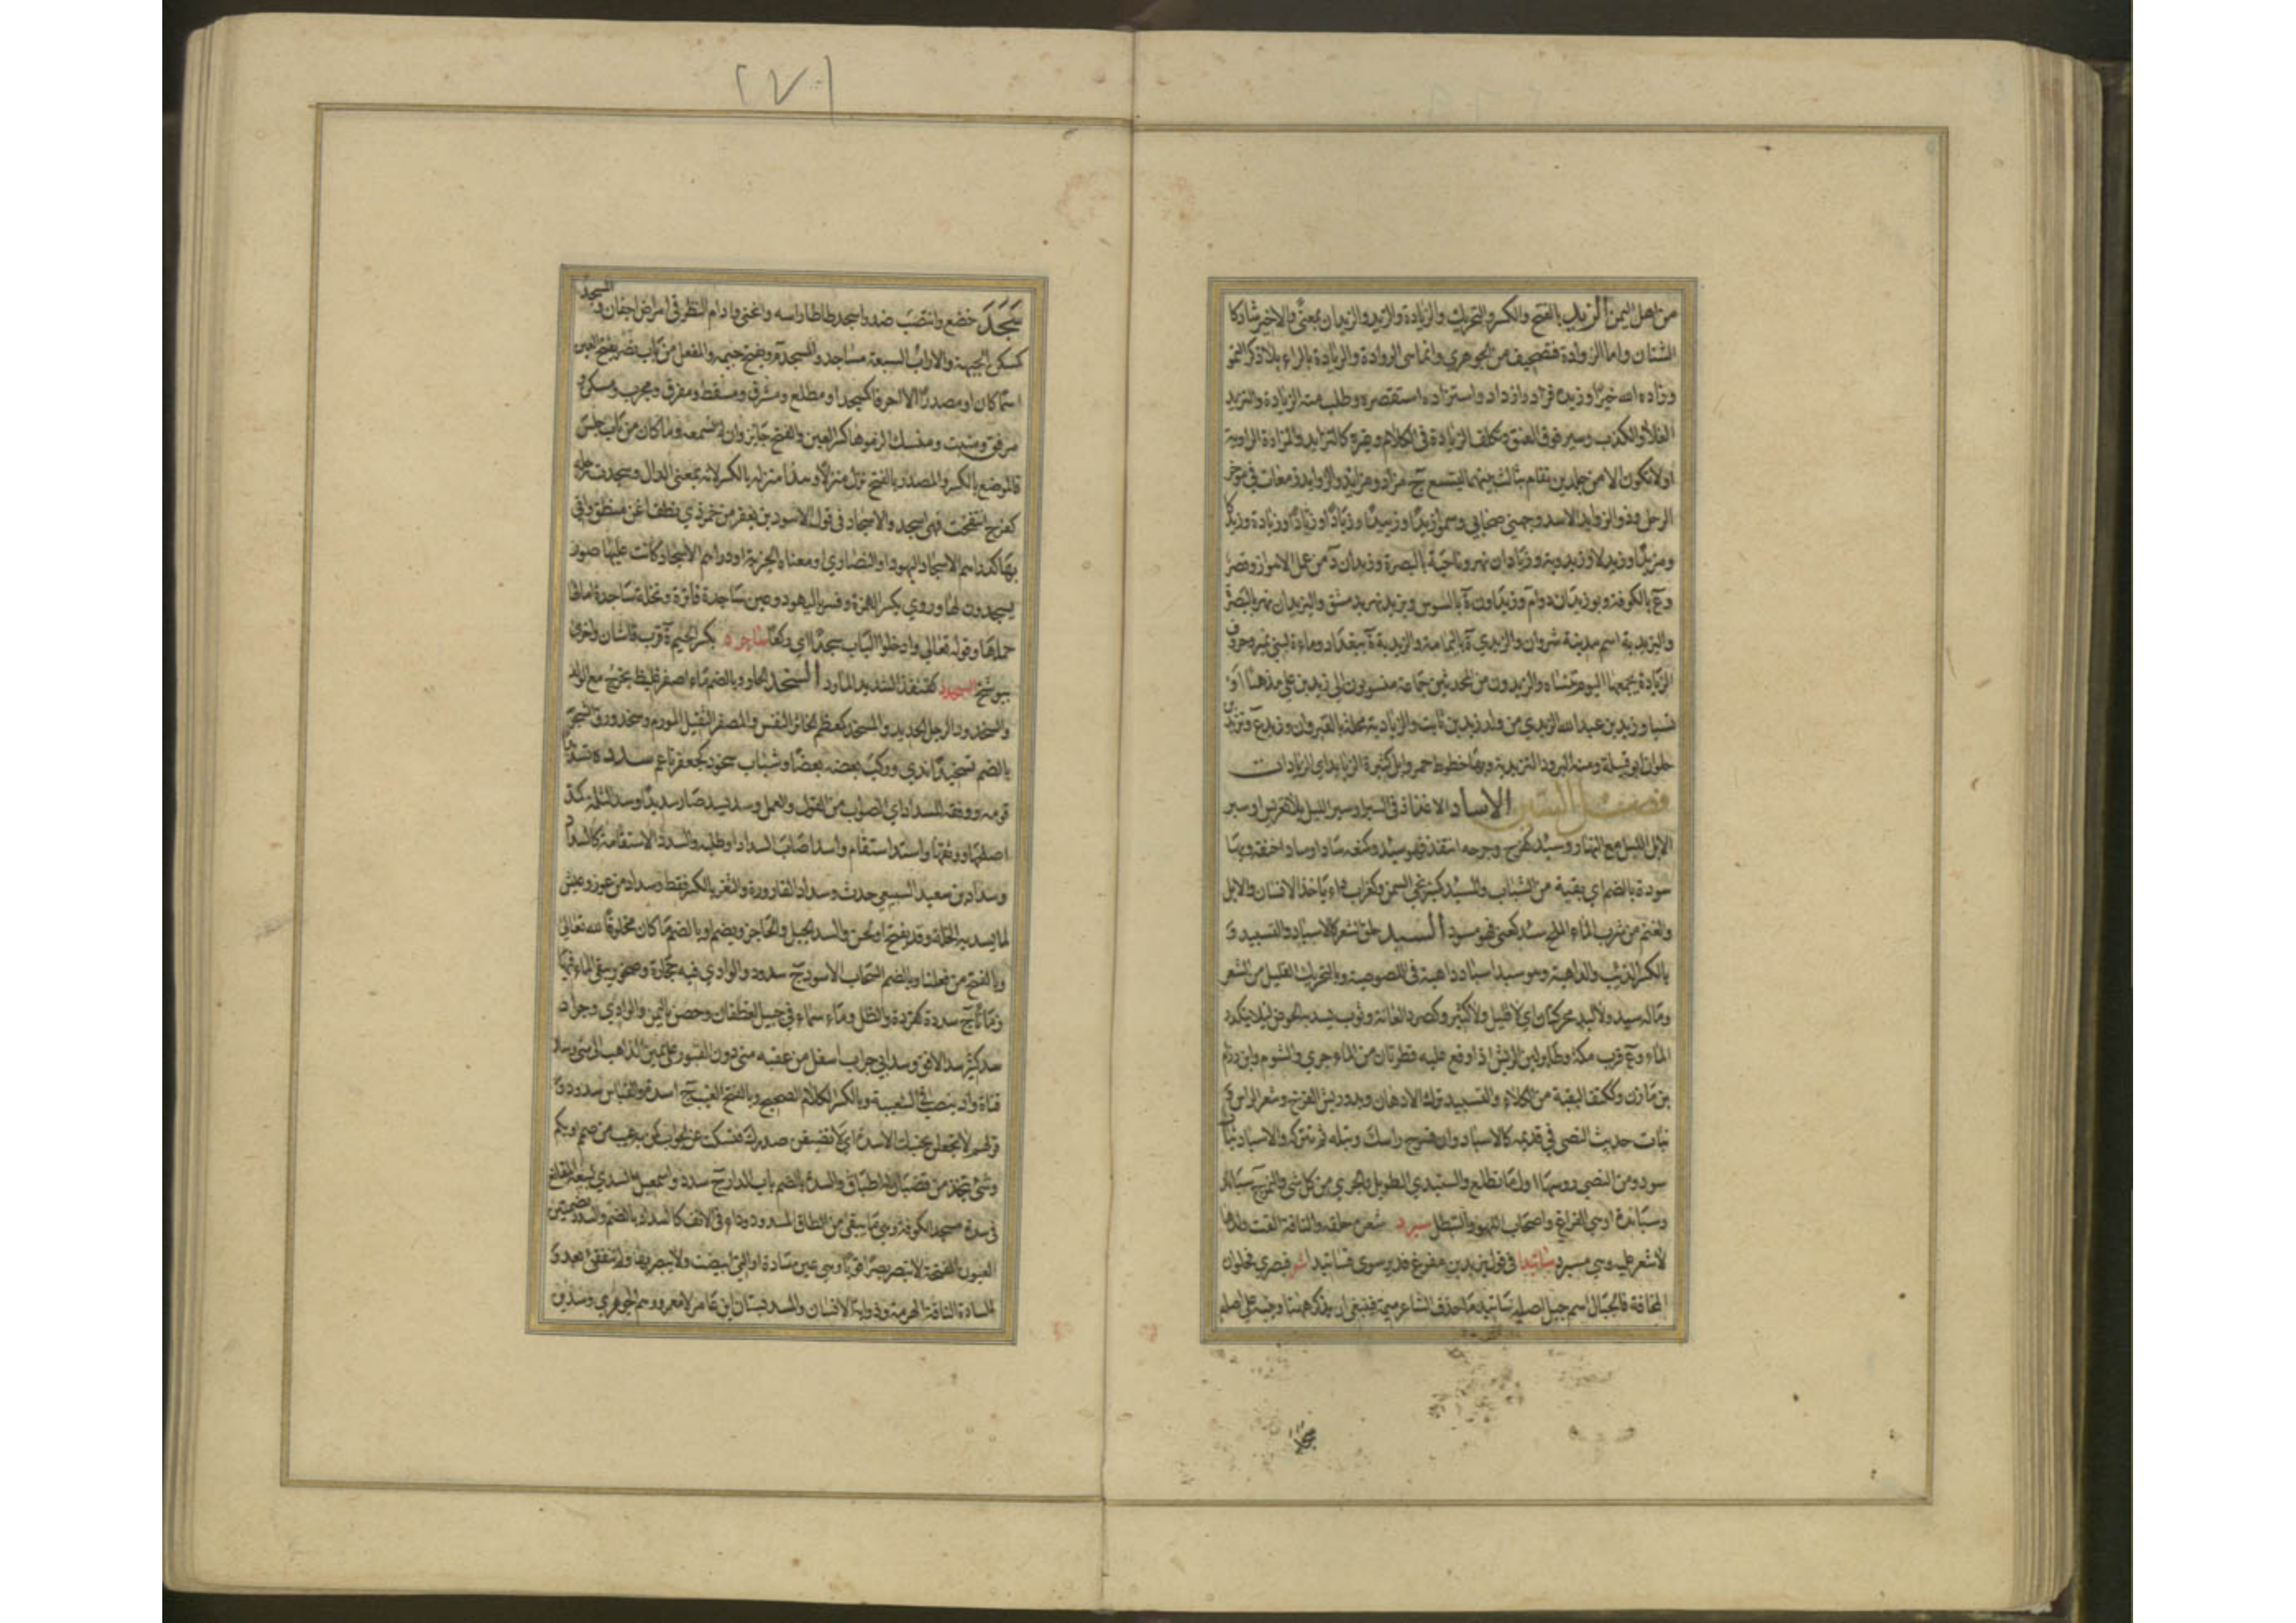 من اهل اليمن الزيد بالفتح والكسر والتحريك والزيادة والمزيد والزيدان بمعنى والاخير شاذ كا
الشنان واما الزوادة فتصحيف من الجوهري وانما هي الروادة والريادة بالراء بلا ذكر النمو
وزاده الله خيرا وزيده فزاد وازداد واستزاده استقصره وطلب منه الزيادة والتزيد
الغلاء والكذب وسير فوق العنق وتكلف الزيادة في الكلام وغيره كالتزايد والمزادة الراوية
او لا تكون الا من جلدين تفام بثالث بينهما لتتسع ج مزاد ومزايد والزوايد زمعات في موخر
الرحل وذو الزوايد الاسد وجهني صحابي وسموا زيدا وزييدا وزيادا وزيادة وزيدكا
ومزيدا وزيدلا وزيدوية وزيادان نهر وناحية بالبصرة وزيدان د من عمل الاهواز وقصر
وع بالكوفة وبوزيدان دواء وزيداون ة بالسوس ويزيد نهر بدمشق واليزيدان نهر بالبصرة
واليزيدية اسم مدينة شروان والزيدي ة باليمامة والزيدية ة ببغداد وماءة لبني نمير وحروف
الزيادة يجمعها اليوم تنساه والزيديون من المحدثين جماعة منسوبون الى زيد بن علي مذهبا او
نسبا وزيد بن عبد الله الزيدي من ولد زيد بن ثابت والزيادية محلة بالقيروان وزيد ع وتزيد بن
حلوان ابو قبيلة ومنه البرود التزيدية وبها خطوط حمر وابل كثيرة الزيايد اي الزيادات
فصل السين الاساد الاغذاذ في السير او سير الليل بلا تعريس او سير
الابل الليل مع النهار وسئد كفرح وجرحه انتقض فهو سئد وكمنعه سادا وسادا خنقه وبها
سودة بالضم اي بقية من الشباب والمسئد كمنبر نحي السمن وكغراب داء ياخذ الانسان والابل
والغنم من شرب الماء الملح سئد كعني فهو مسود السبد حلق الشعر كالاسباد والتسبيد و
بالكسر الذئب والداهية وهو سبد اسباد داهية في اللصوصية وبالتحريك القليل من الشعر
وماله سبد ولا لبد محركتان اي لا قليل ولا كثير وكصرد العانة وثوب يسد به الحوض ليلا يتكدر
الماء وع قرب مكة وطاير لين الريش اذا وقع عليه قطرتان من الماء جرى والشوم وابن رزام
بن مازن وككتف البقية من الكلاء والتسبيد ترك الادهان وبدو ريش الفرخ وشعر الراس و
نبات حديث النصي في قديمه كالاسباد وان تسرح راسك وتبله ثم تتركه والاسباد ثياب
سود ومن النصي روسها اول ما تطلع والسبندى الطويل والجري من كل شي والنمر ج سباند
وسباندة او هي الفراغ واصحاب اللهو والتبطل سبرد شعره حلقه والناقة القت ولدها
لا شعر عليه وهي مسبرد ساتيدا في قول يزيد بن مفرغ فدير سوى فساتيدا فبصرى فحلوان
المخافة فالجبال اسم جبل اصله ساتيدما حذف الشاعر ميمه فينبغي ان يذكر هنا وجنبه على اصله
٢٧١
سجد خضع وانتصب ضد واسجد طاطا راسه وانحنى وادام النظر في امراض اجفان والمسجد
كمسكن الجبهة والاراب السبعة مساجد والمسجد م ويفتح جيمه والمفعل من باب نصر بفتح العين
اسما كان او مصدرا الا احرفا كمسجد ومطلع ومشرق ومسقط ومفرق ومجزر ومسكن و
مرفق ومنبت ومنسك الزموها كسر العين والفتح جايز وان لم نسمعه وما كان من باب جلس
فالموضع بالكسر والمصدر بالفتح نزل منزلا وهذا منزله بالكسر لانه بمعنى الدار وسجدت رجله
كفرح انتفخت فهي اسجد والاسجاد في قول الاسود بن يعفر من خمر ذي نطف اغن منطق وافى
بها كدراهم الاسجاد اليهود او النصاري او معناه الجزية او دراهم الاسجاد كانت عليها صور
يسجدون لها وروي بكسر الهمزة وفسر باليهود وعين ساجدة فاترة ونخلة ساجدة امالها
حملها وقوله تعالى وادخلوا الباب سجدا اي ركعا ساجرد بكسر الجيم ة قرب قاشان واخرى
ببوشنج السجرد كقنفذ الشديد المارد السخد الحار وبالضم ماء اصفر غليظ يخرج مع الولد
والسخدود الرجل الحديد والمسخد كمعظم الخاثر النفس والمصفر الثقيل المورم وسخد ورق الشجر
بالضم تسخيدا ندي وركب بعضه بعضا وشباب سخود كجعفر ناعم سدده تسديدا
قومه ووفقه للسداد اي الصواب من القول والعمل وسد يسد صار سديدا وسد الثلمة كمد
اصلحها ووثقها واستد استقام واسد اصاب السداد او طلبه والسدد الاستقامة كالسداد
وسداد بن سعيد السبيعي حدث وسداد القارورة والثغر بالكسر فقط وسداد من عوز وعيش
لما يسد به الخلة وقد يفتح او لحن والسد الجبل والحاجز ويضم او بالضم ما كان مخلوقا لله تعالى
وبالفتح من فعلنا وبالضم السحاب الاسود ج سدود والوادي فيه حجارة وصخور يبقى الماء فيها
زمانا ج سددة كقردة والظل وماء سماء في جبل لغطفان وحصن باليمن والوادي وجراد
سد كثير سد الافق وسد ابي جراب اسفل من عقبة منى دون القبور على يمين الذاهب الى منى وسد
قناة واد ينصب في الشعيبة وبالكسر الكلام الصحيح وبالفتح العيب ج اسدة والقياس سدود و
قولهم لا تجعلن بجنبك الاسدة اي لا تضيقن صدرك فتسكت عن الجواب كمن به عيب من صمم او بكم
وشي يتخذ من قضبان له اطباق والسدة بالضم باب الدار ج سدد واسمعيل السدي لبيعه المقانع
في سدة مسجد الكوفة وهي ما يبقى من الطاق المسدود وداء في الانف كالسداد بالضم والسدد بضمتين
العيون المفتحة لا تبصر بصرا قويا وهي عين سادة او التي ابيضت ولا يبصر بها ولم تنفقئ بعد و
السادة الناقة الهرمة وذوابة الانسان والمسد بستان ابن عامر لا معمر ووهم الجوهري وسدين